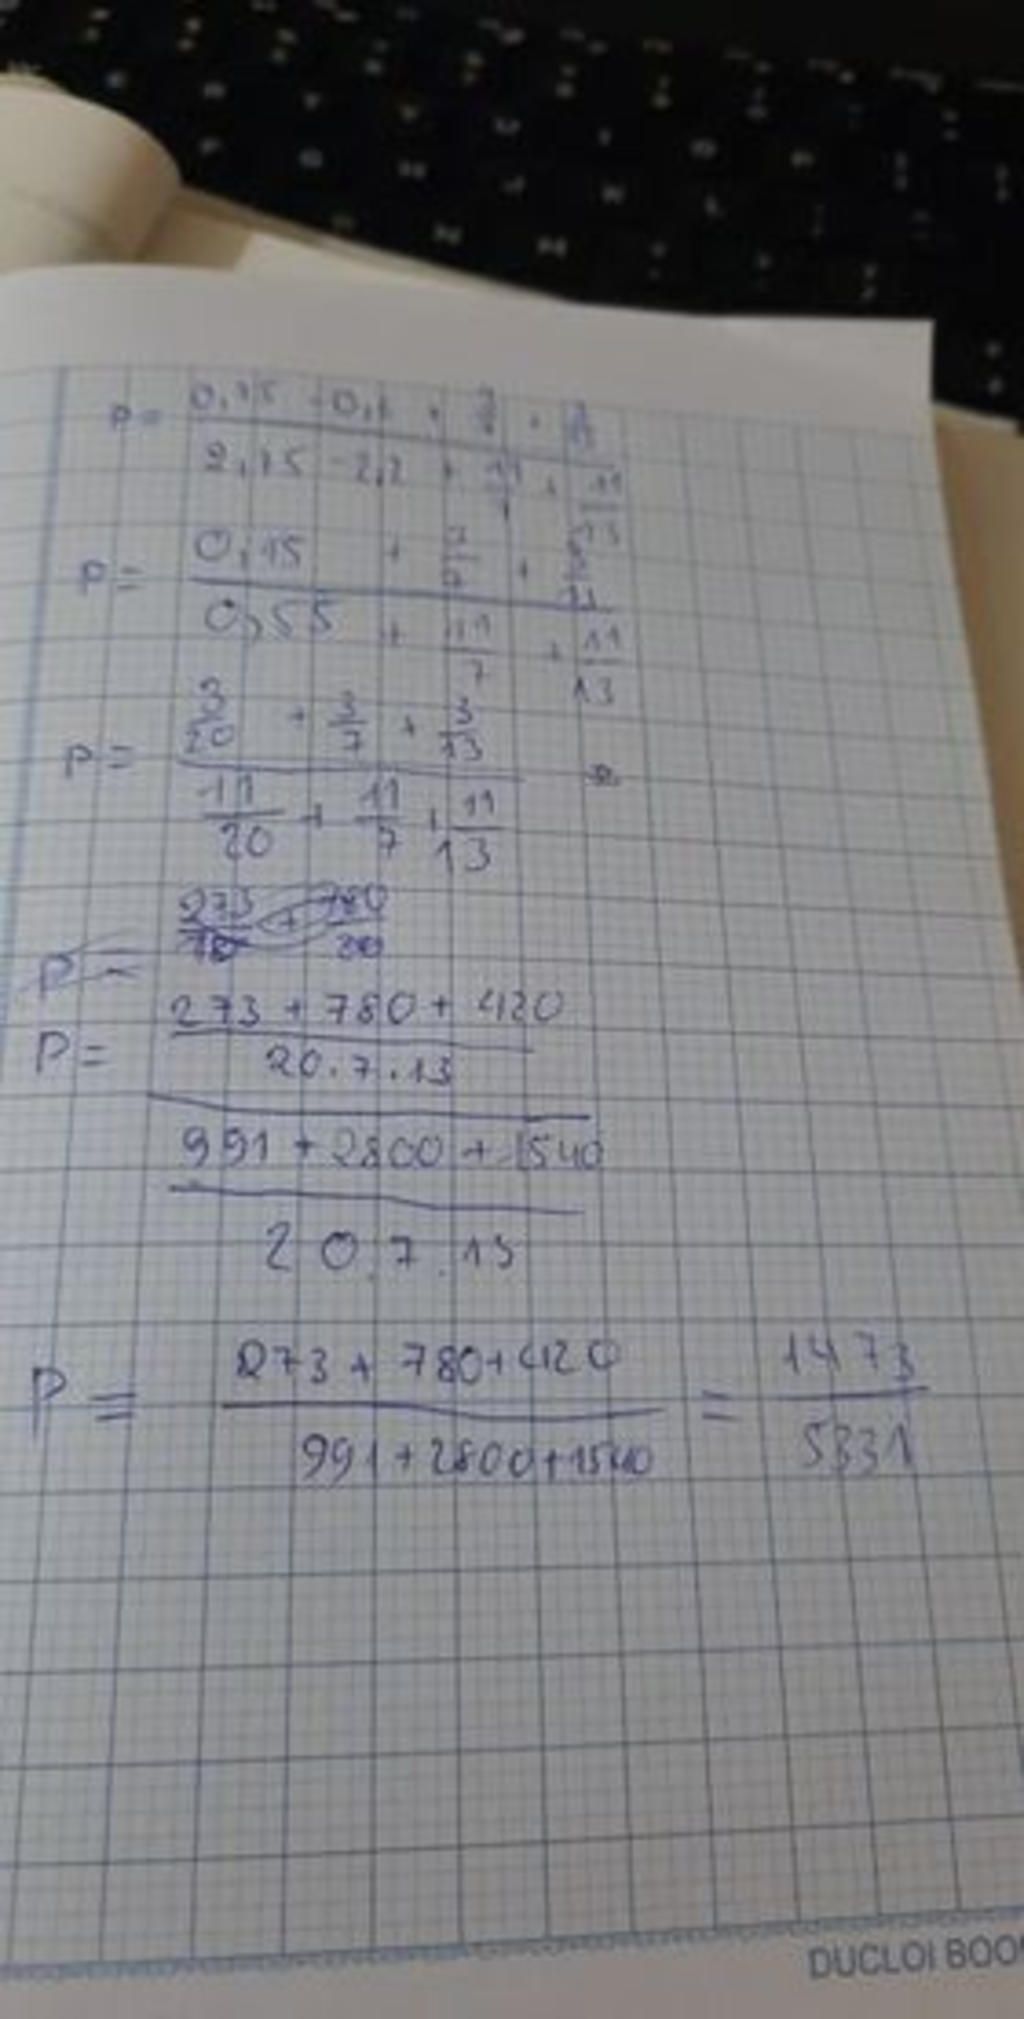 P = 0,75 - 0,6 + 3/7 + 3/13
2,75 - 2,2 + 11/7 + 11/13
P = 0,15 + 3/7 + 3/13
0,55 + 11/7 + 11/13
P = 3/20 + 3/7 + 3/13
11/20 + 11/7 + 11/13
273 + 780
P =
273 + 780 + 420
P =
20.7.13
991 + 2800 + 1540
20.7.13
P = 273 + 780 + 420 = 1473
991 + 2800 + 1540 5331
DUCLOI BOO